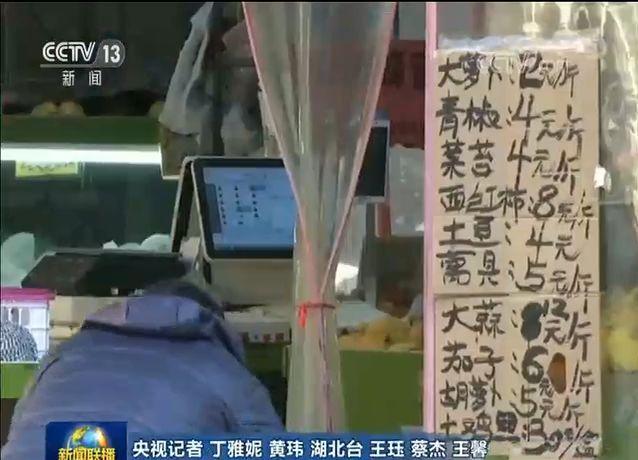 CCTV 13
新闻
大萝卜:2元/斤
青椒:4元/斤
菜苔:4元/斤
西红柿:8元/斤
土豆:4元
莴具:5元/斤
大蒜:12元/斤
茄子:6元/斤
胡萝卜:5元/斤
土鸡里:30元/盒
新闻联播
央视记者 丁雅妮 黄玮 湖北台 王珏 蔡杰 王馨